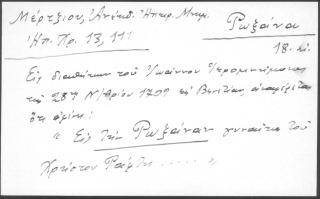 Μέρτζιου, Ἀνέκδ. Ἠπειρ. Μνημ.
Ἠπ. Χρ. 13, 111
Ρωξάνα
18. αἰ.
Εἰς διαθήκην τοῦ Ἰωάννου Ἱερομνήμονος
τῆς 28ης Ν/βρίου 1709 ἐν Βενετίᾳ ἀναφέρεται
ὅτι ἀφίνει:
" Εἰς τὴν Ρωξάναν γυναῖκα τοῦ
Χρήστου ..... "